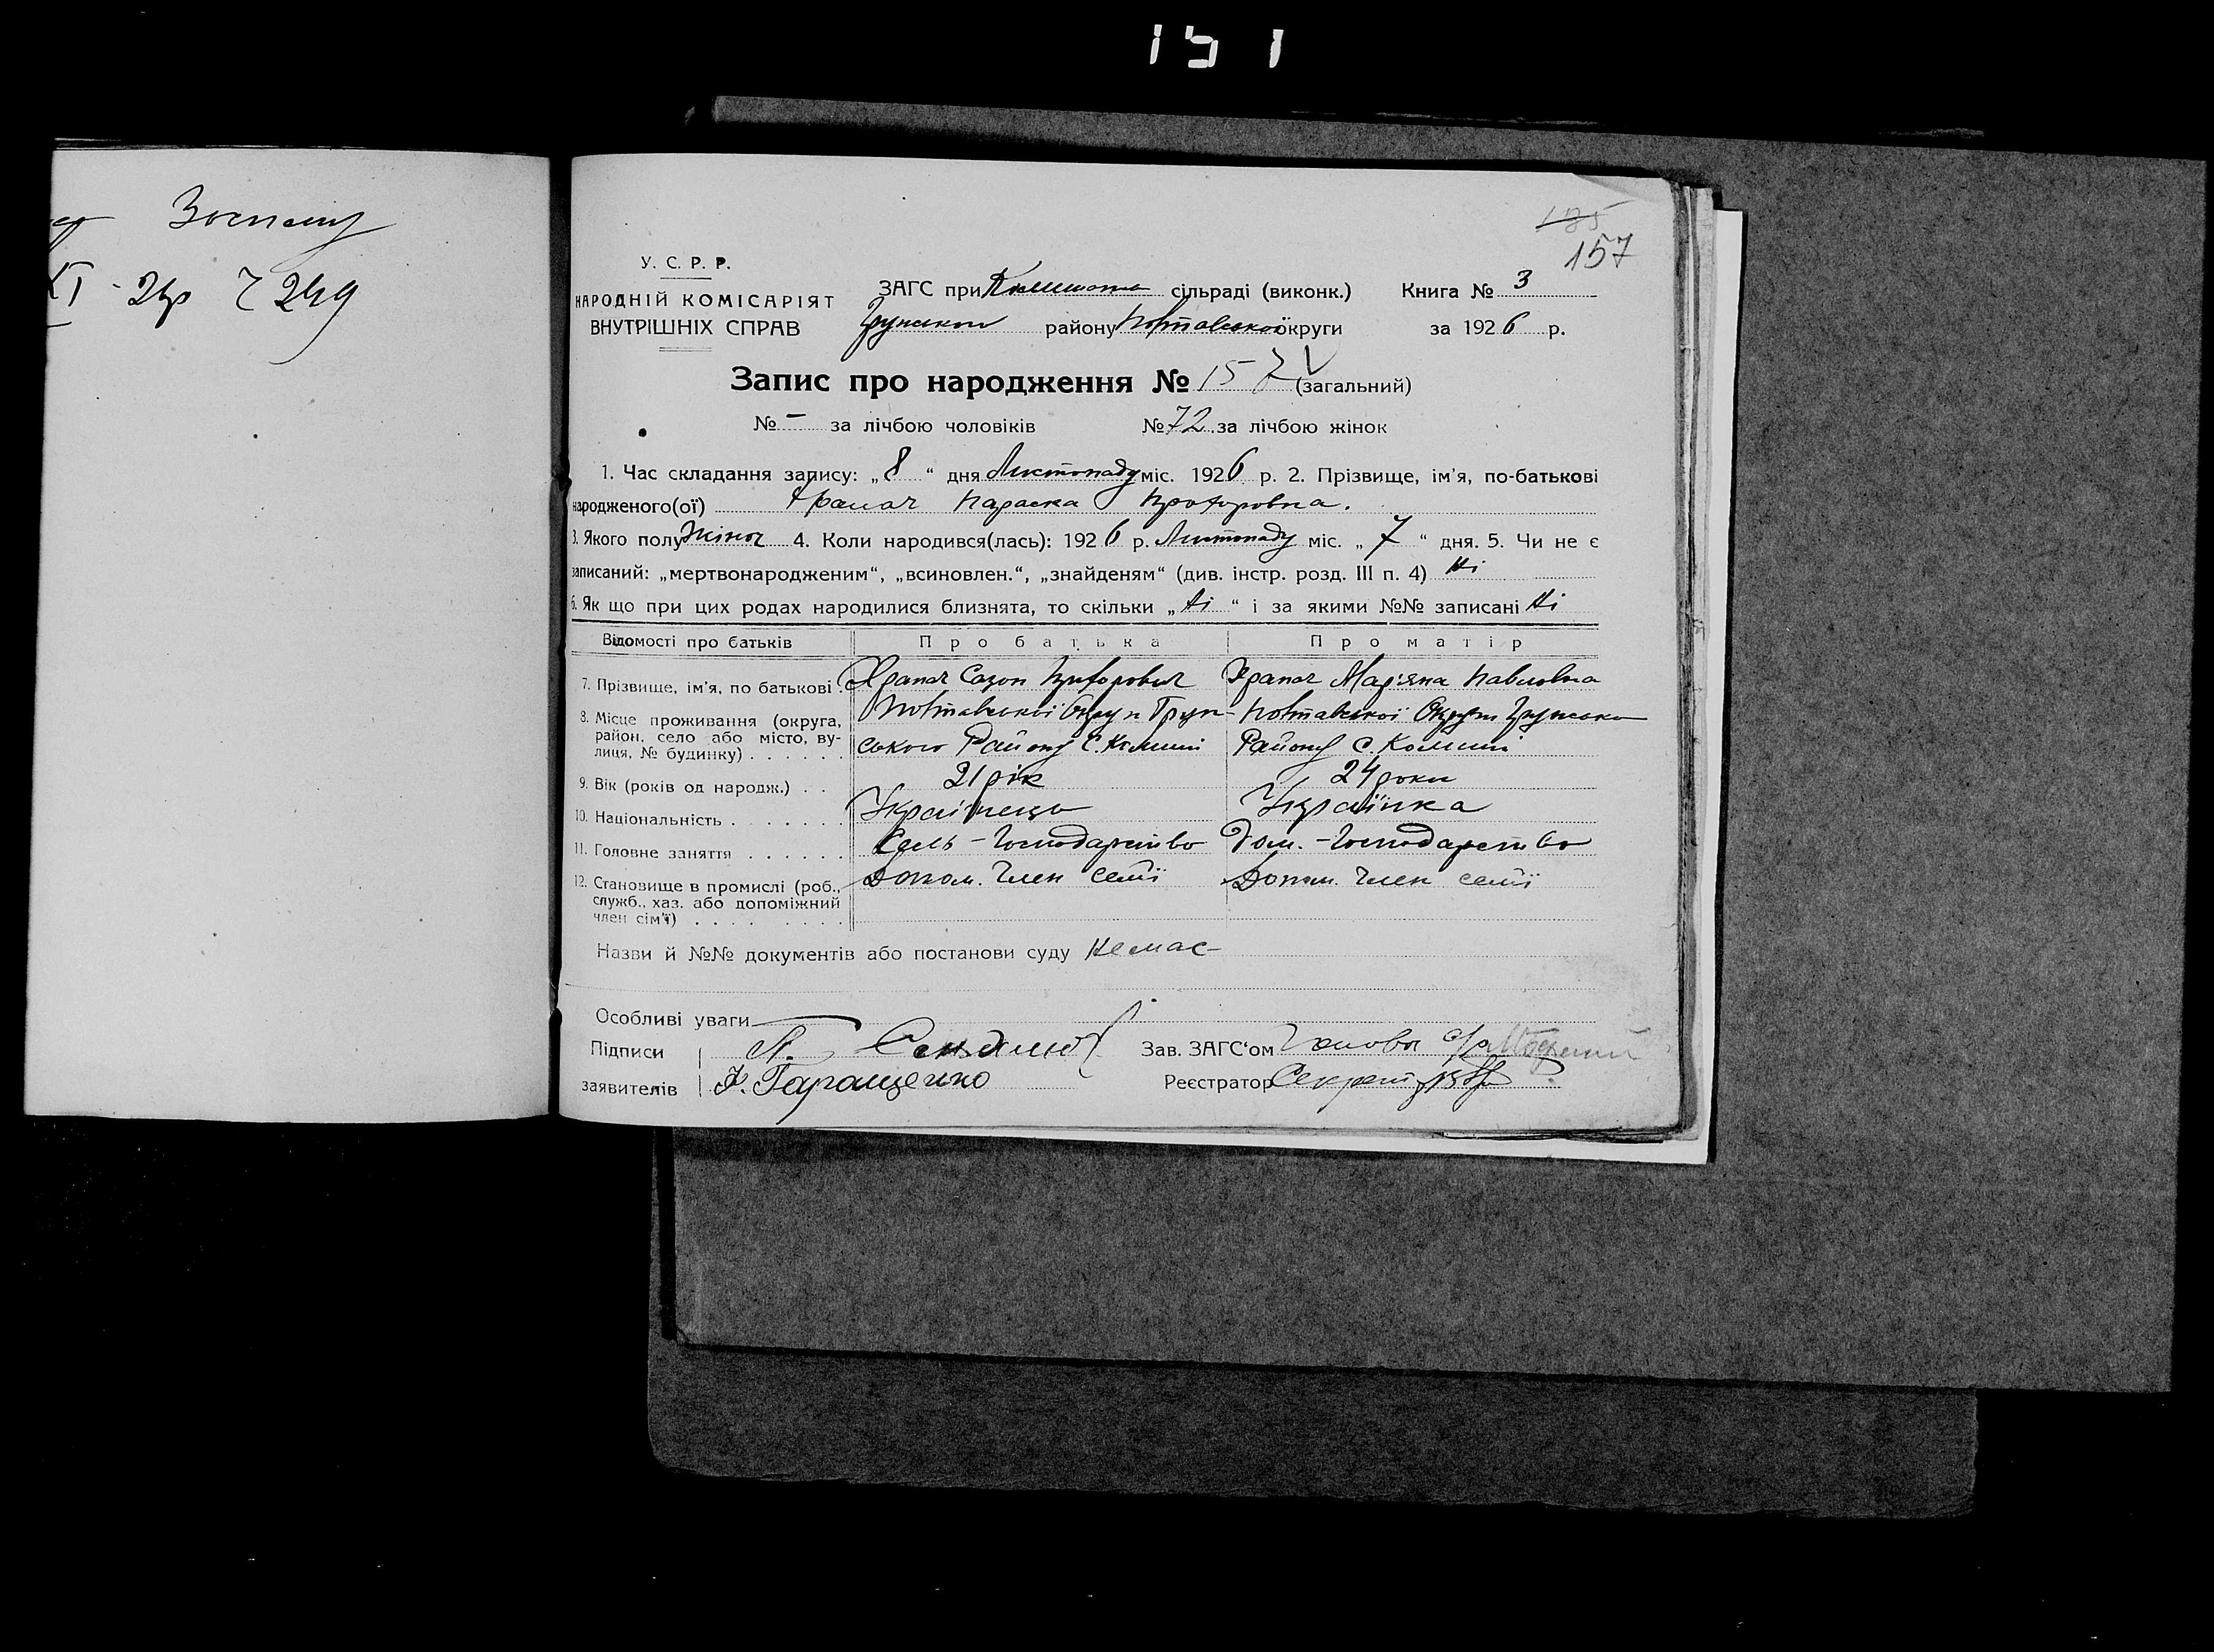 151
Воспему
XI - 24р 7249
135
157
У. С. Р. Р.
НАРОДНІЙ КОМІСАРІЯТ
ВНУТРІШНІХ СПРАВ
ЗАГС при сільраді (виконк.) Книга № 3
Грунського району Полтавської округи за 1926 р.
Запис про народження № 157 (загальний)
№ - за лічбою чоловіків № 72 за лічбою жінок
1. Час складання запису: „8“ дня Листопаду міс. 1926 р. 2. Прізвище, ім'я, по-батькові
народженого(ої) Храпач Параска Прохоровна.
3. Якого полу Жіноч 4. Коли народився(лась): 1926 р. Листопаду міс. „7“ дня. 5. Чи не є
записаний: „мертвонародженим“, „всиновлен.“, „знайденям“ (див. інстр. розд. III п. 4) Ні
6. Як що при цих родах народилися близнята, то скільки „Ні“ і за якими №№ записані Ні
Відомості про батьків Про батька Про матір
7. Прізвище, ім'я, по батькові . Храпач Сазон Прохорович Храпач Мар'яна Павловна
8. Місце проживання (округа, район, село або місто, вулиця, № будинку) . . . . . . Полтавської Округи Грунського Району С. Комиші Полтавської Округи Грунського Району С. Комиші
9. Вік (років од народж.) . . 21 рік 24 роки
10. Національність . . . . . . . Українець Українка
11. Головне заняття . . . . . . Сель-Господарство Дом.-Господарство
12. Становище в промислі (роб., служб., хаз. або допоміжний член сім'ї) . . . . . . . . Допом. Член семії Допом. Член семії
Назви й №№ документів або постанови суду Немає
Особливі уваги
Підписи П. Зав. ЗАГС'ом Голова с/р
заявителів Х. Гаращенко Реєстратор Секретар